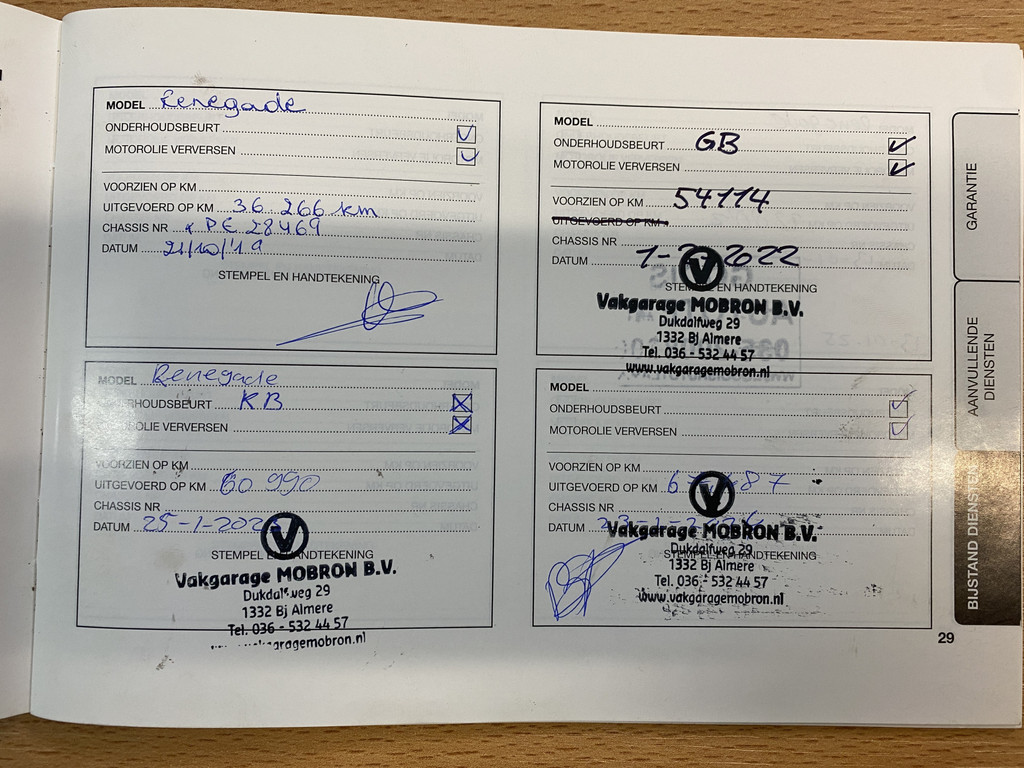 MODEL Renegade
ONDERHOUDSBEURT
MOTOROLIE VERVERSEN
VOORZIEN OP KM
UITGEVOERD OP KM 36 266 km
CHASSIS NR * PE 28469
DATUM 21/10/'19
STEMPEL EN HANDTEKENING
MODEL
ONDERHOUDSBEURT GB
MOTOROLIE VERVERSEN
VOORZIEN OP KM 54114
UITGEVOERD OP KM
CHASSIS NR
DATUM 1- 2022
STEMPEL EN HANDTEKENING
Vakgarage MOBRON B.V.
Dukdalfweg 29
1332 Bj Almere
Tel. 036 - 532 44 57
www.vakgaragemobron.nl
MODEL Renegade
ONDERHOUDSBEURT KB
MOTOROLIE VERVERSEN
VOORZIEN OP KM
UITGEVOERD OP KM 60 990
CHASSIS NR
DATUM 25-1-202
STEMPEL EN HANDTEKENING
Vakgarage MOBRON B.V.
Dukdalfweg 29
1332 Bj Almere
Tel. 036 - 532 44 57
www.vakgaragemobron.nl
MODEL
ONDERHOUDSBEURT
MOTOROLIE VERVERSEN
VOORZIEN OP KM
UITGEVOERD OP KM
CHASSIS NR
DATUM
STEMPEL EN HANDTEKENING
Vakgarage MOBRON B.V.
Dukdalfweg 29
1332 Bj Almere
Tel. 036 - 532 44 57
www.vakgaragemobron.nl
GARANTIE
AANVULLENDE
DIENSTEN
BIJSTAND DIENSTEN
29